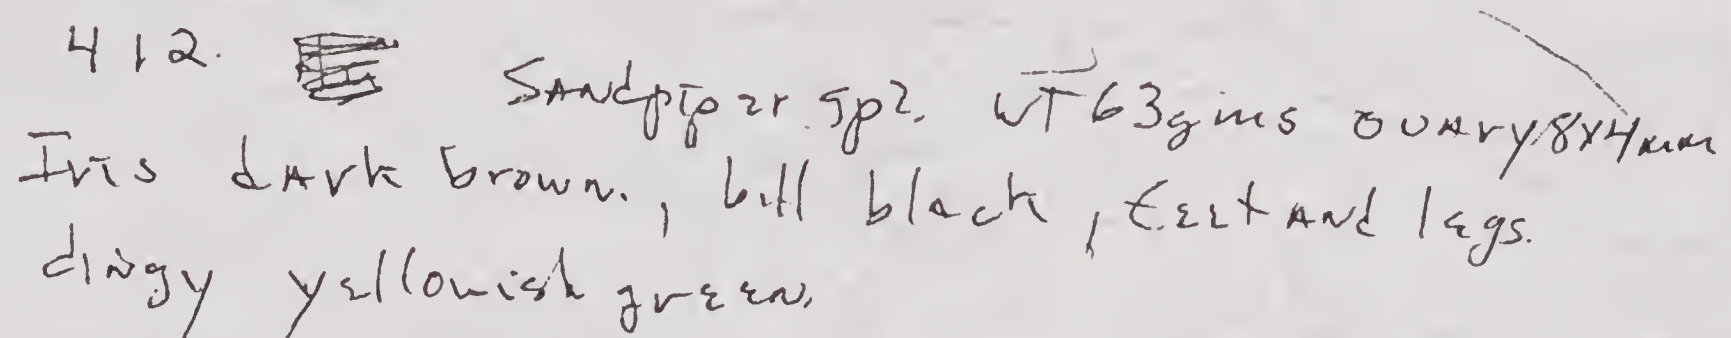 412. Sandpiper sp?. WT 63gms ovary 8x4mm
Iris dark brown., bill black, feet and legs.
dingy yellowish green.